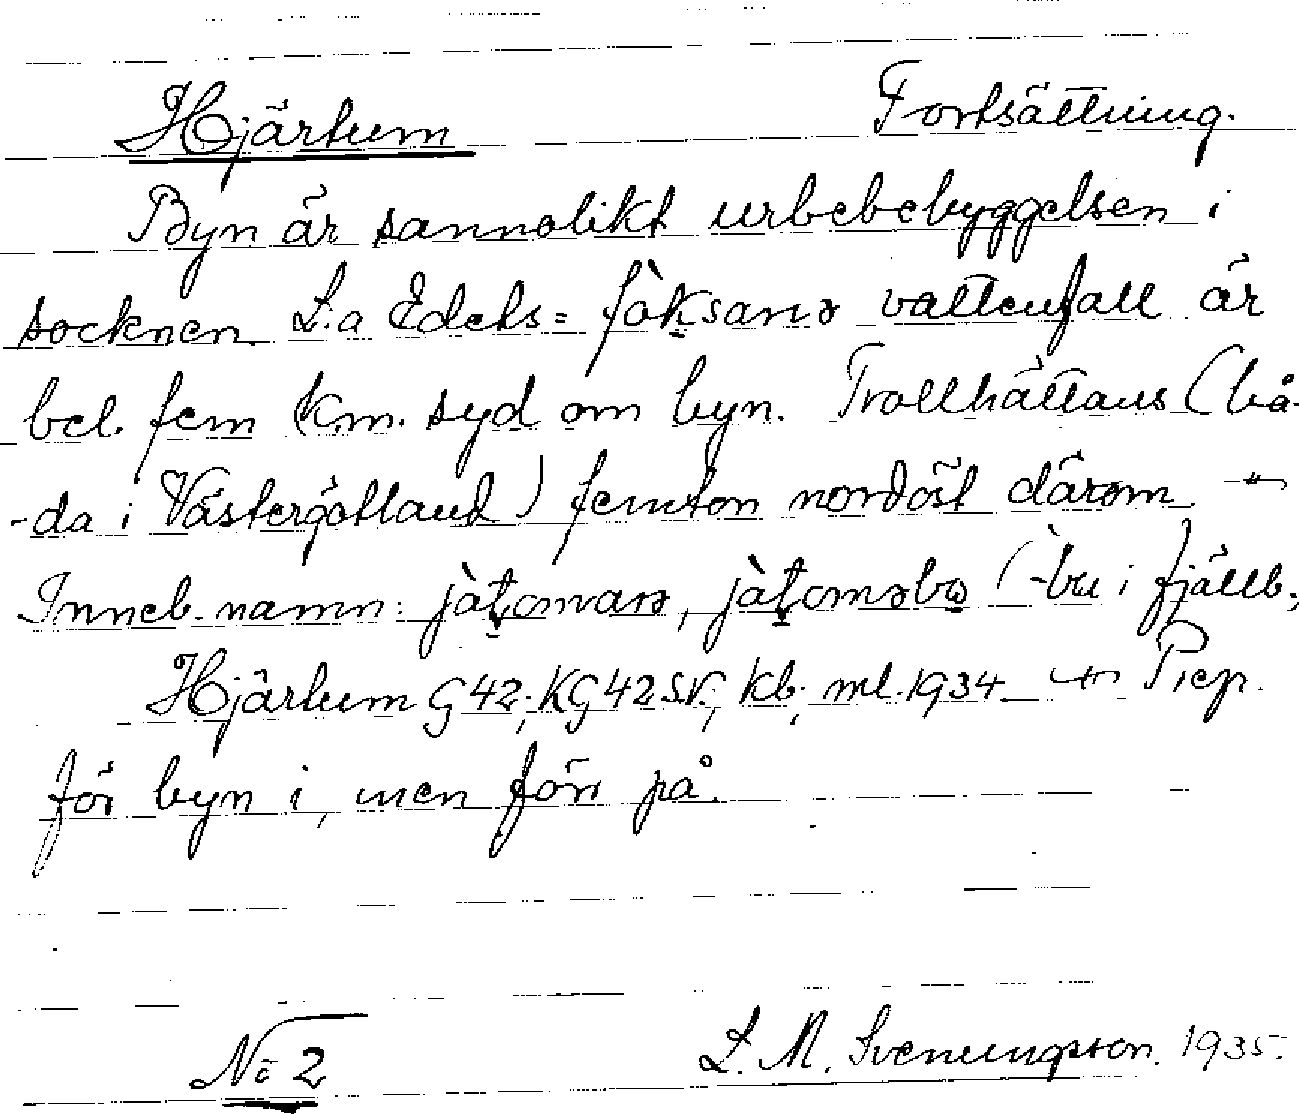 Hjärtum Fortsättning.
Byn är sannolikt urbebebyggelsen i
socknen L:a Edets= fòksanə vattenfall är
bel. fem km. syd om byn. Trollhättans (bå-
-da i Västergötland) femton nordöst därom
Inneb. namn: jàt̨omarə, jàt̨oməbω (-bu i fjällb.;
Hjärtum G42; KG42.SV.; kb; ml. 1934 Prep.
för byn i, men förr på.
No 2 L. M. Svenungsson. 1935.